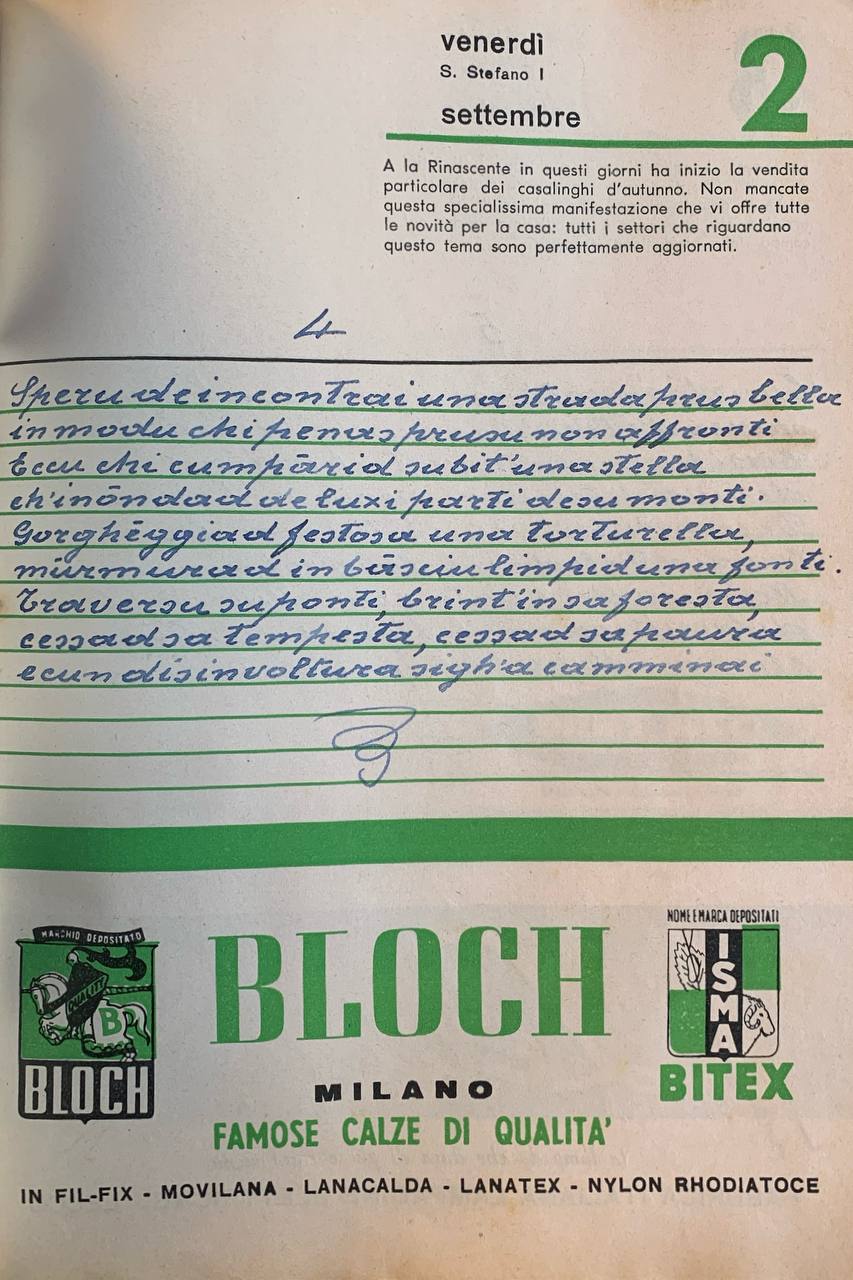 venerdì
S. Stefano I
settembre
2
A la Rinascente in questi giorni ha inizio la vendita
particolare dei casalinghi d'autunno. Non mancate
questa specialissima manifestazione che vi offre tutte
le novità per la casa: tutti i settori che riguardano
questo tema sono perfettamente aggiornati.
4
Speru de incontrai una strada prus bella
in modu chi penas prusu non affronti
Eccu chi cumpārid subit'una stella
ch'inōndad de luxi parti de su monti.
Gorghēggiad festosa una torturella,
mūrmurad in bāsciu limpid una fonti.
Traversu su ponti, brint'in sa foresta,
cessad sa tempesta, cessad sa paura
e cun disinvoltura sigh'a camminai
MARCHIO DEPOSITATO
QUALITÀ
B
BLOCH
BLOCH
MILANO
FAMOSE CALZE DI QUALITA'
NOME E MARCA DEPOSITATI
ISMA
BITEX
IN FIL-FIX - MOVILANA - LANACALDA - LANATEX - NYLON RHODIATOCE